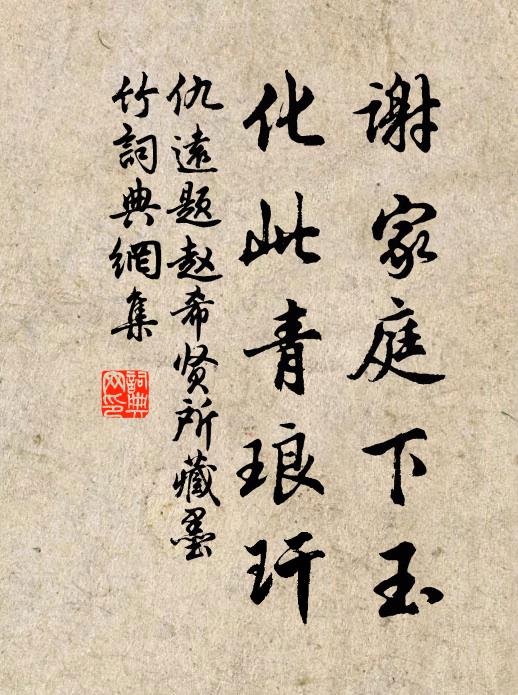 謝家庭下玉
化此青琅玕
仇遠題赵希贤所藏墨
竹詞典網集
詞典
网印